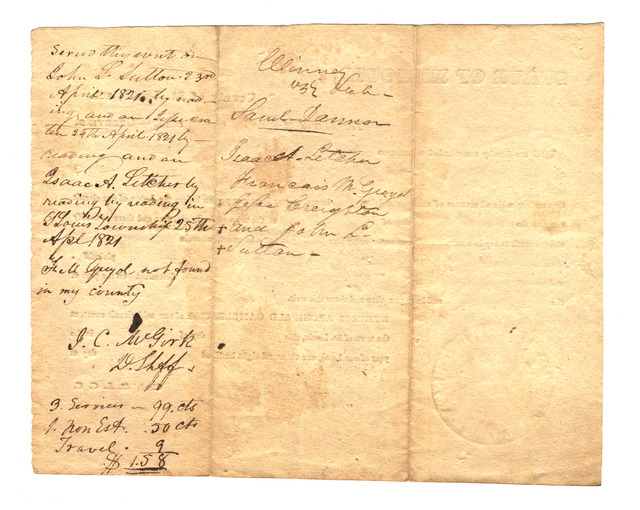 Served this writ on
John L. Sutton 23rd
April 1821 by read-
ing and on
ton 24th April 1821 by
reading and on
Isaac A. Letcher by
reading by reading in
St Louis Township 25th
Apl 1821
F. M Guyol not found
in my county
J. C. McGirk
D. Shff
3. Services — 99. cts
1. Non Est. . 50 cts
Travel . 9
$ 1.58
Winney
vs Sub-
Saml Dannon
Isaac A. Letcher
Francais M. Guyol
pipe Creighton
+ and John L.
+ Sutton —